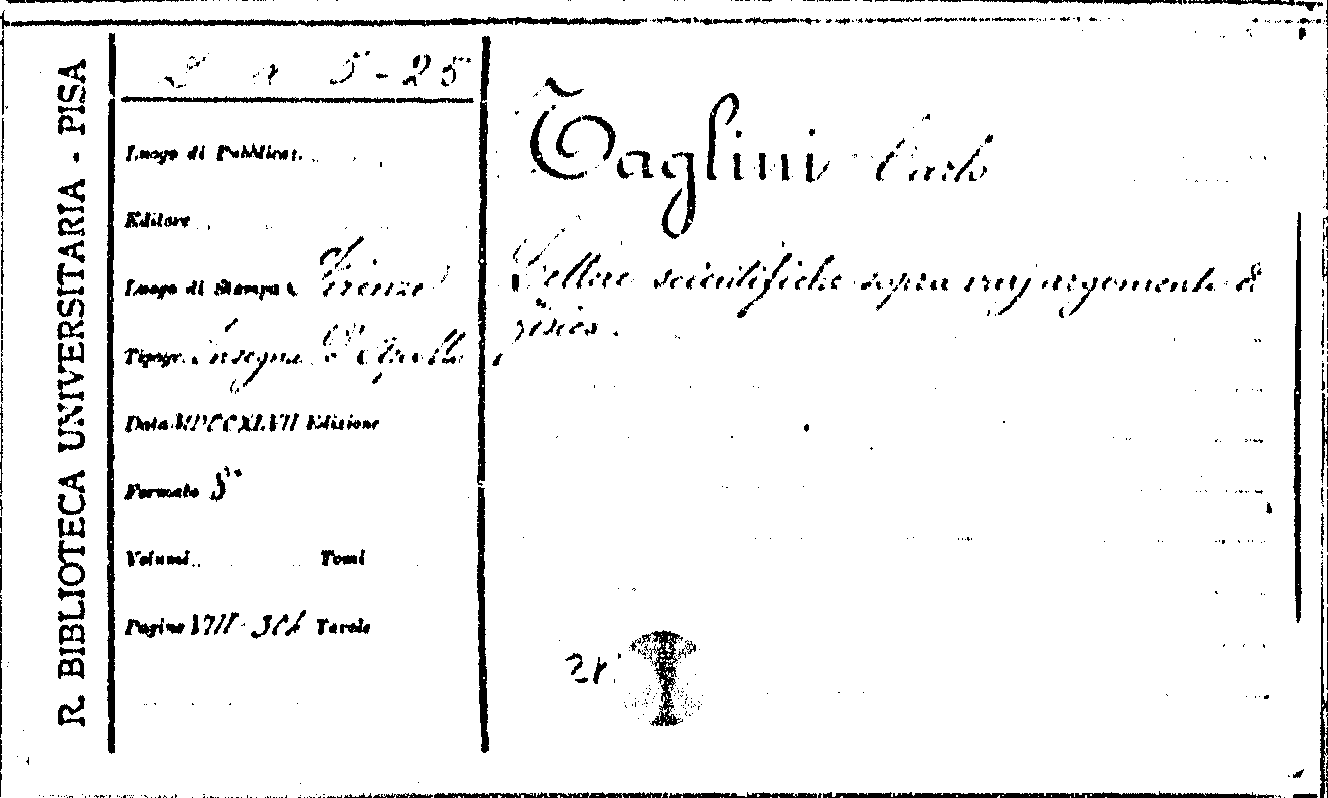 R. BIBLIOTECA UNIVERSITARIA - PISA
a 5-25
Luogo di Pubblicaz.
Editore
Luogo di Stampa Firenze
Tipogr. Insegna d'Apollo
Data MDCCXLVII Edizione
Formato 8°
Volumi Tomi
Pagine VIII- Tavole
Taglini Carlo
Lettere scientifiche sopra varj argomenti di
fisica.